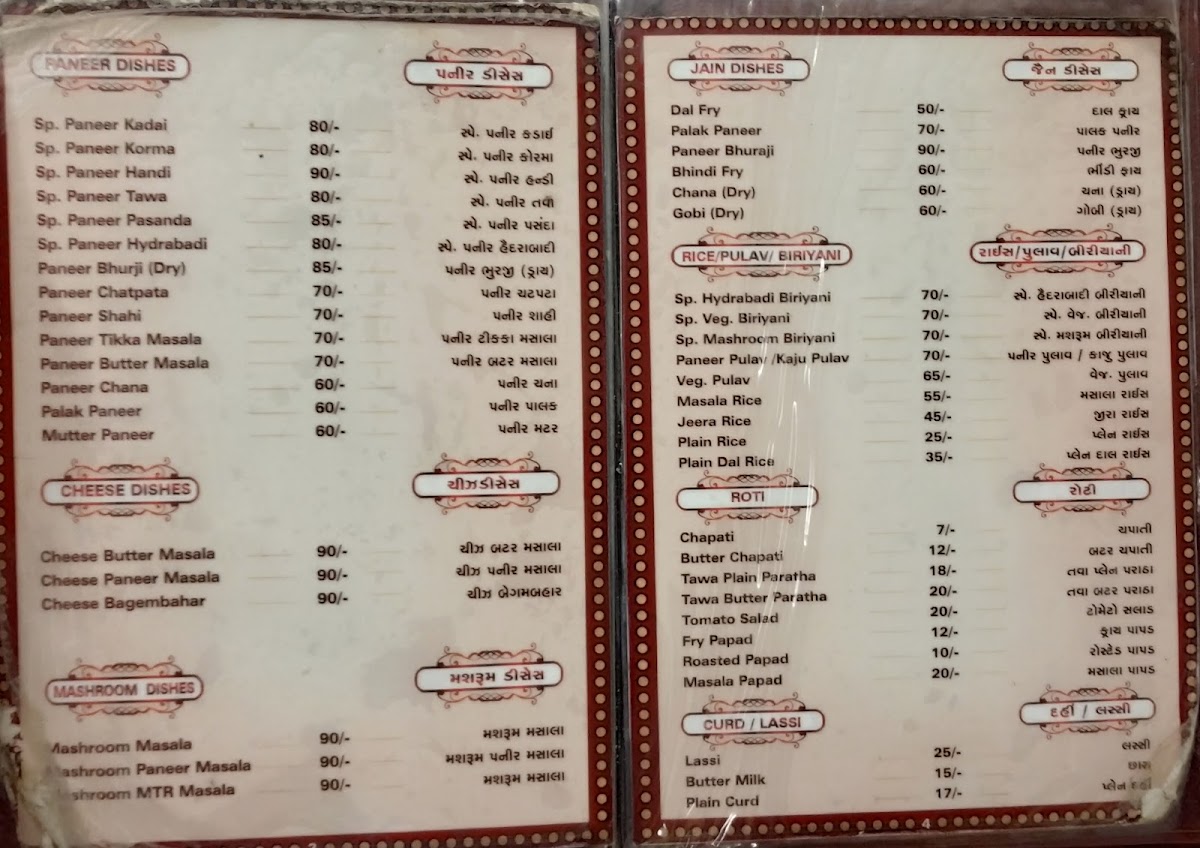 PANEER DISHES પનીર ડીસેસ
Sp. Paneer Kadai 80/- સ્પે. પનીર કડાઈ
Sp. Paneer Korma 80/- સ્પે. પનીર કોરમા
Sp. Paneer Handi 90/- સ્પે. પનીર હન્ડી
Sp. Paneer Tawa 80/- સ્પે. પનીર તવા
Sp. Paneer Pasanda 85/- સ્પે. પનીર પસંદા
Sp. Paneer Hydrabadi 80/- સ્પે. પનીર હૈદરાબાદી
Paneer Bhurji (Dry) 85/- પનીર ભુરજી (ડ્રાય)
Paneer Chatpata 70/- પનીર ચટપટા
Paneer Shahi 70/- પનીર શાહી
Paneer Tikka Masala 70/- પનીર ટીકકા મસાલા
Paneer Butter Masala 70/- પનીર બટર મસાલા
Paneer Chana 60/- પનીર ચના
Palak Paneer 60/- પનીર પાલક
Mutter Paneer 60/- પનીર મટર
CHEESE DISHES ચીઝડીસેસ
Cheese Butter Masala 90/- ચીઝ બટર મસાલા
Cheese Paneer Masala 90/- ચીઝ પનીર મસાલા
Cheese Bagembahar 90/- ચીઝ બેગમબહાર
MASHROOM DISHES મશરૂમ ડીસેસ
Mashroom Masala 90/- મશરૂમ મસાલા
Mashroom Paneer Masala 90/- મશરૂમ પનીર મસાલા
Mashroom MTR Masala 90/- મશરૂમ મસાલા
JAIN DISHES જૈન ડીસેસ
Dal Fry 50/- દાલ ફ્રાય
Palak Paneer 70/- પાલક પનીર
Paneer Bhuraji 90/- પનીર ભુરજી
Bhindi Fry 60/- ભીંડી ફાય
Chana (Dry) 60/- ચના (ડ્રાય)
Gobi (Dry) 60/- ગોબી (ડ્રાય)
RICE/PULAV/ BIRIYANI રાઈસ/પુલાવ/બીરીયાની
Sp. Hydrabadi Biriyani 70/- સ્પે. હૈદરાબાદી બીરીયાની
Sp. Veg. Biriyani 70/- સ્પે. વેજ. બીરીયાની
Sp. Mashroom Biriyani 70/- સ્પે. મશરૂમ બીરીયાની
Paneer Pulav /Kaju Pulav 70/- પનીર પુલાવ / કાજુ પુલાવ
Veg. Pulav 65/- વેજ. પુલાવ
Masala Rice 55/- મસાલા રાઈસ
Jeera Rice 45/- જીરા રાઈસ
Plain Rice 25/- પ્લેન રાઈસ
Plain Dal Rice 35/- પ્લેન દાલ રાઈસ
ROTI રોટી
Chapati 7/- ચપાતી
Butter Chapati 12/- બટર ચપાતી
Tawa Plain Paratha 18/- તવા પ્લેન પરાઠા
Tawa Butter Paratha 20/- તવા બટર પરાઠા
Tomato Salad 20/- ટોમેટો સલાડ
Fry Papad 12/- ફ્રાય પાપડ
Roasted Papad 10/- રોસ્ટેડ પાપડ
Masala Papad 20/- મસાલા પાપડ
CURD / LASSI દહીં / લસ્સી
Lassi 25/- લસ્સી
Butter Milk 15/- છાસ
Plain Curd 17/- પ્લેન દહીં
4